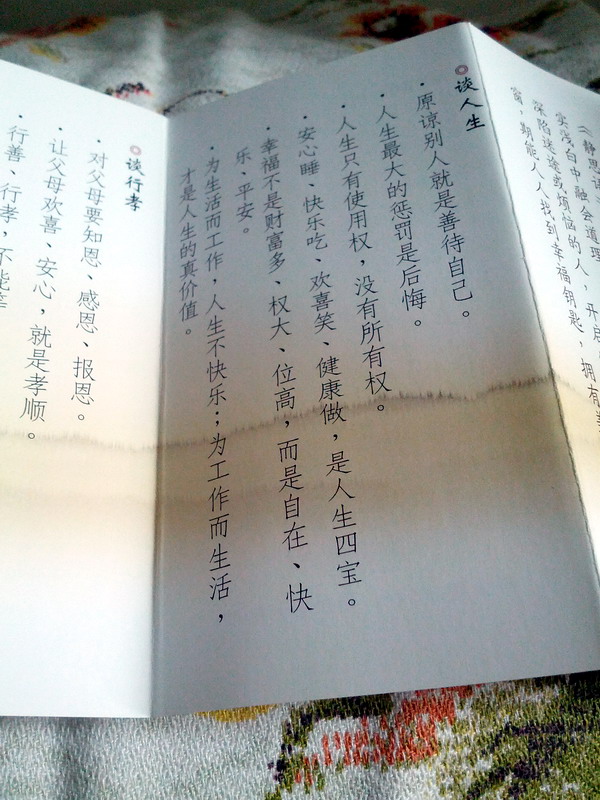 《静思语
实践白中融会道理
深陷迷途或烦恼的人，开启
窗，期能人人找到幸福钥匙，拥有
谈人生
·原谅别人就是善待自己。
·人生最大的惩罚是后悔。
·人生只有使用权，没有所有权。
·安心睡、快乐吃、欢喜笑、健康做，是人生四宝。
·幸福不是财富多、权大、位高，而是自在、快
乐、平安。
·为生活而工作，人生不快乐；为工作而生活，
才是人生的真价值。
谈行孝
·对父母要知恩、感恩、报恩。
·让父母欢喜、安心，就是孝顺。
·行善、行孝，不能等